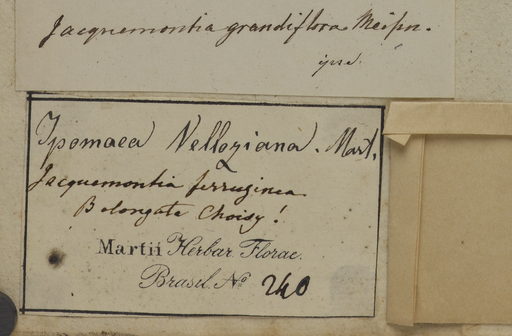 Jacquemontia grandiflora Meisn.
ipse.
Ipomaea Velloziana. Mart.
Jacquemontia ferruginea
B elongata Choisy!
Martii Herbar. Florae.
Brasil. No 240